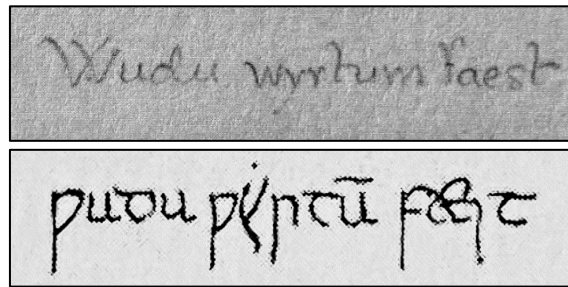 Wudu wyrtum faest
ƿudu ƿẏrtū fæst